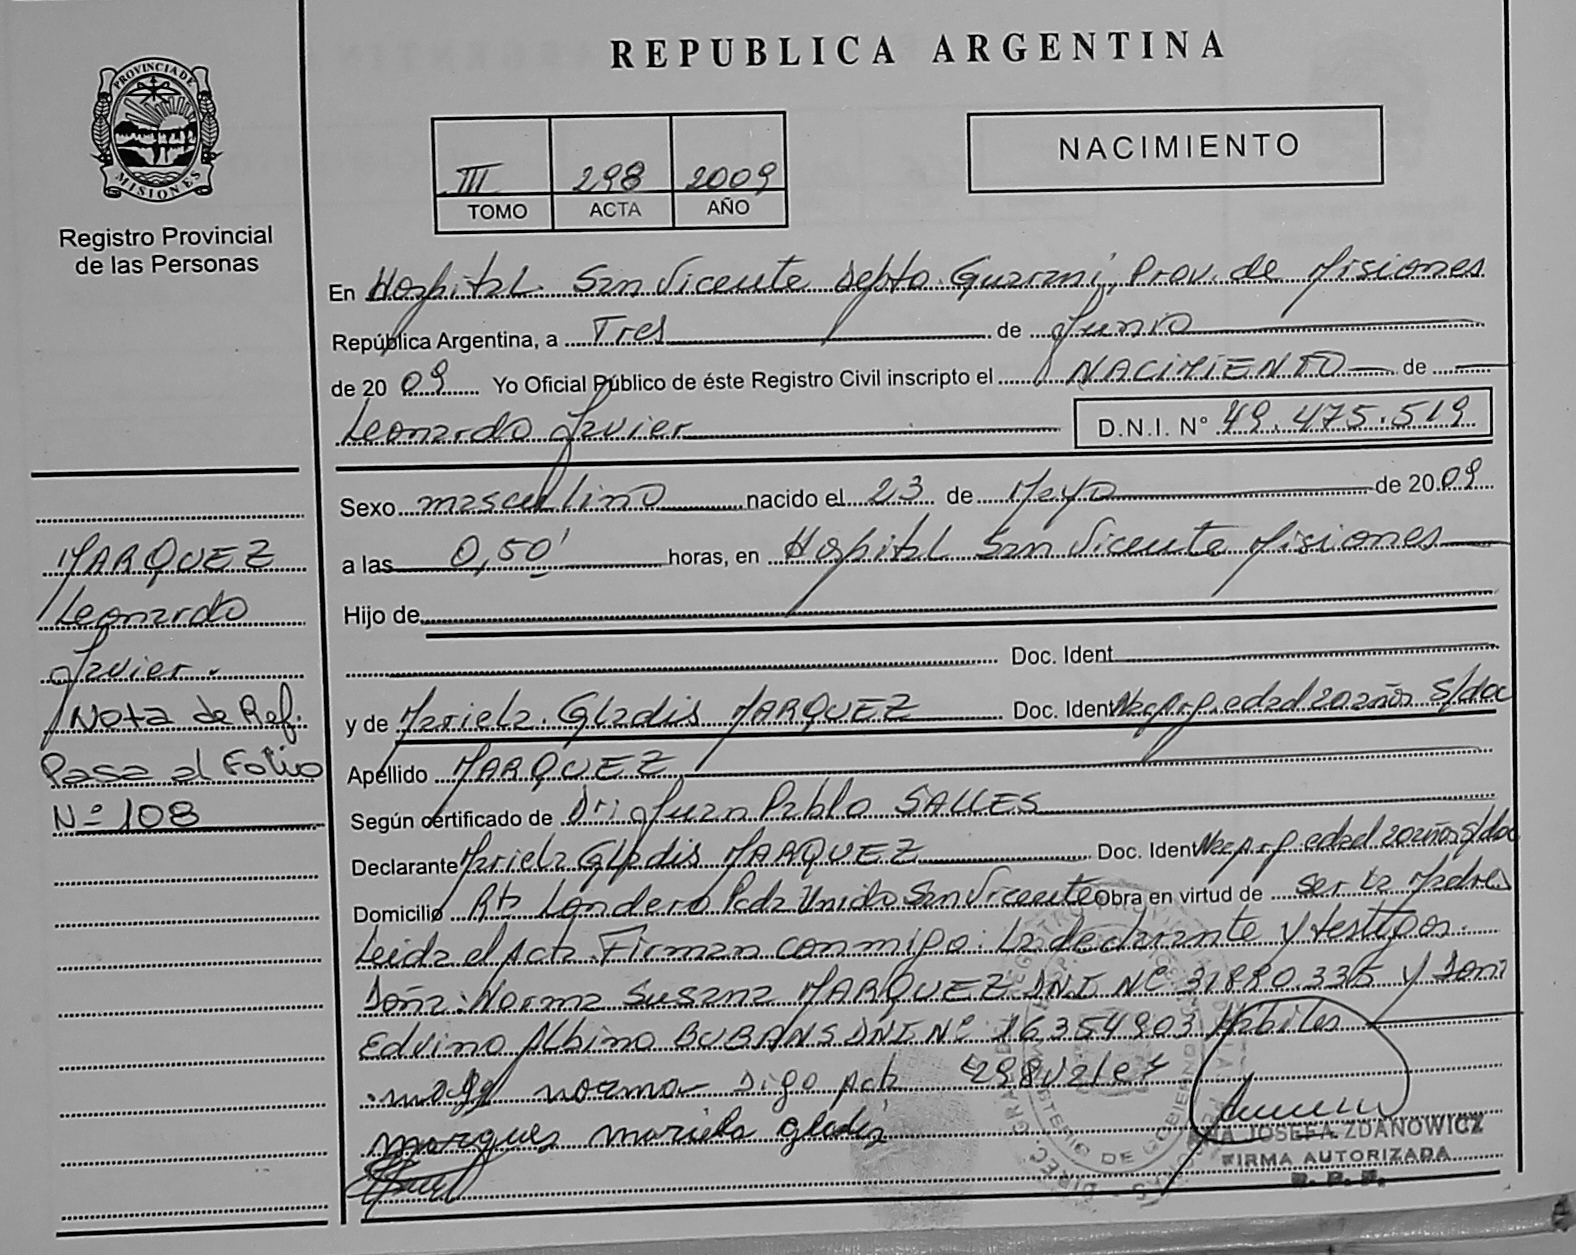 REPUBLICA ARGENTINA
PROVINCIA DE
MISIONES
Registro Provincial
de las Personas
III 298 2009
TOMO ACTA AÑO
NACIMIENTO
En Hospital San Vicente depto. Guaraní, Prov. de Misiones
República Argentina, a Tres de Junio
de 2009 Yo Oficial Público de éste Registro Civil inscripto el NACIMIENTO de
Leonardo Javier D.N.I. N° 49.475.519
Sexo masculino nacido el 23 de Mayo de 2009
a las 0,50' horas, en Hospital San Vicente Misiones
Hijo de
Doc. Ident
y de Mariela Gladis MARQUEZ Doc. Ident edad 20 años S/doc
Apellido MARQUEZ
Según certificado de Dr: Juan Pablo SALLES
Declarante Mariela Gladis MARQUEZ Doc. Ident edad 20 años S/doc
Domicilio Londero Pcda Unido San Vicente Obra en virtud de ser la Madre
Leida el Acta Firman conmigo: la declarante y testigos.
Doña: Norma Susana MARQUEZ DNI N° 31.880.335 y Don:
Edvino Albino BUBANS DNI N° 16,354,903 Hábiles
norma Digo Acta 298 Vale
marques mariela gladis
ZDANOWICZ
FIRMA AUTORIZADA
MARQUEZ
Leonardo
Javier.
Nota de Ref.
Pasa al Folio
N° 108